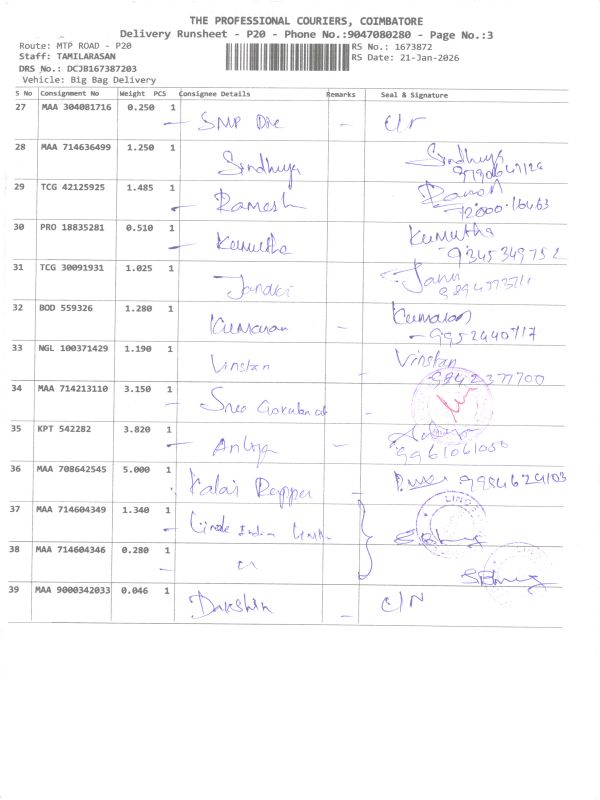 THE PROFESSIONAL COURIERS, COIMBATORE
Delivery Runsheet - P20 - Phone No.:9047080280 - Page No.:3
Route: MTP ROAD - P20 RS No.: 1673872
Staff: TAMILARASAN RS Date: 21-Jan-2026
DRS No.: DCJB167387203
Vehicle: Big Bag Delivery
S No Consignment No Weight PCS Consignee Details Remarks Seal & Signature
27 MAA 304081716 0.250 1
SMP - C/r
28 MAA 714636499 1.250 1
Sindhuya Sindhuya
29 TCG 42125925 1.485 1
Ramesh
30 PRO 18835281 0.510 1
Kumutha Kumutha
9345349752
31 TCG 30091931 1.025 1
Janaki Janu
32 BOD 559326 1.280 1
Kumaran - Kumaran
- 9952440717
33 NGL 100371429 1.190 1
Vinstan Vinstan
9842377700
34 MAA 714213110 3.150 1
Sree
35 KPT 542282 3.820 1
-
9961061050
36 MAA 708642545 5.000 1
Kalai Pepper - 9954624103
37 MAA 714604349 1.340 1
Linde India
38 MAA 714604346 0.280 1
39 MAA 9000342033 0.046 1
Darshin - C/N